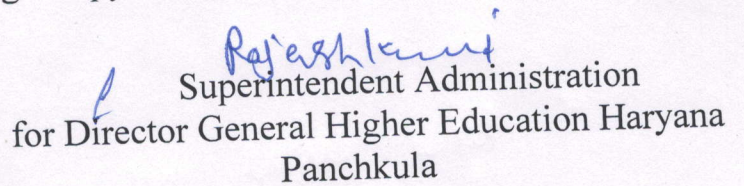 Rajesh Kumar
Superintendent Administration
for Director General Higher Education Haryana
Panchkula